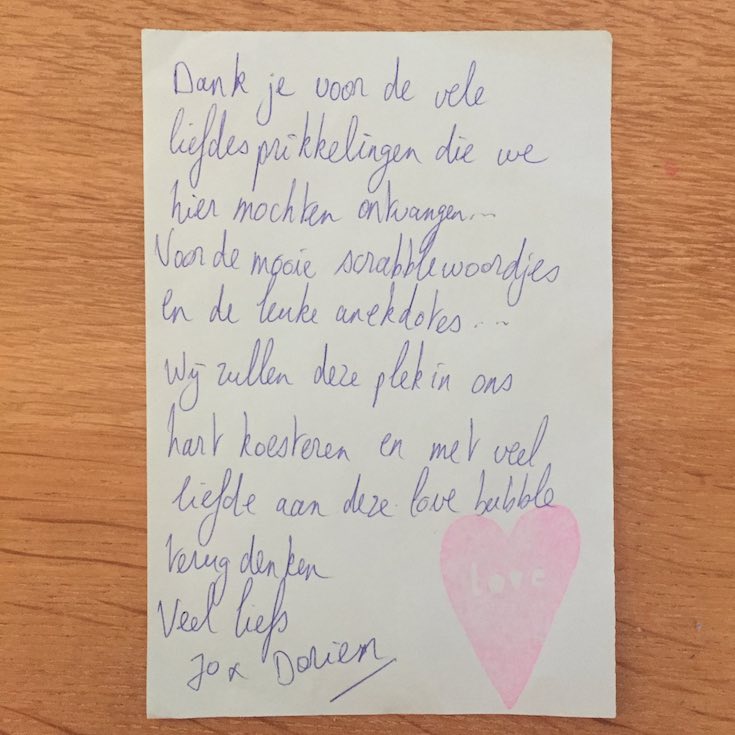 Dank je voor de vele
liefdesprikkelingen die we
hier mochten ontvangen...
Voor de mooie scrabblewoordjes
en de leuke anekdotes...
Wij zullen deze plek in ons
hart koesteren en met veel
liefde aan deze love bubble
terug denken
Veel liefs
Jo x Dorien
love